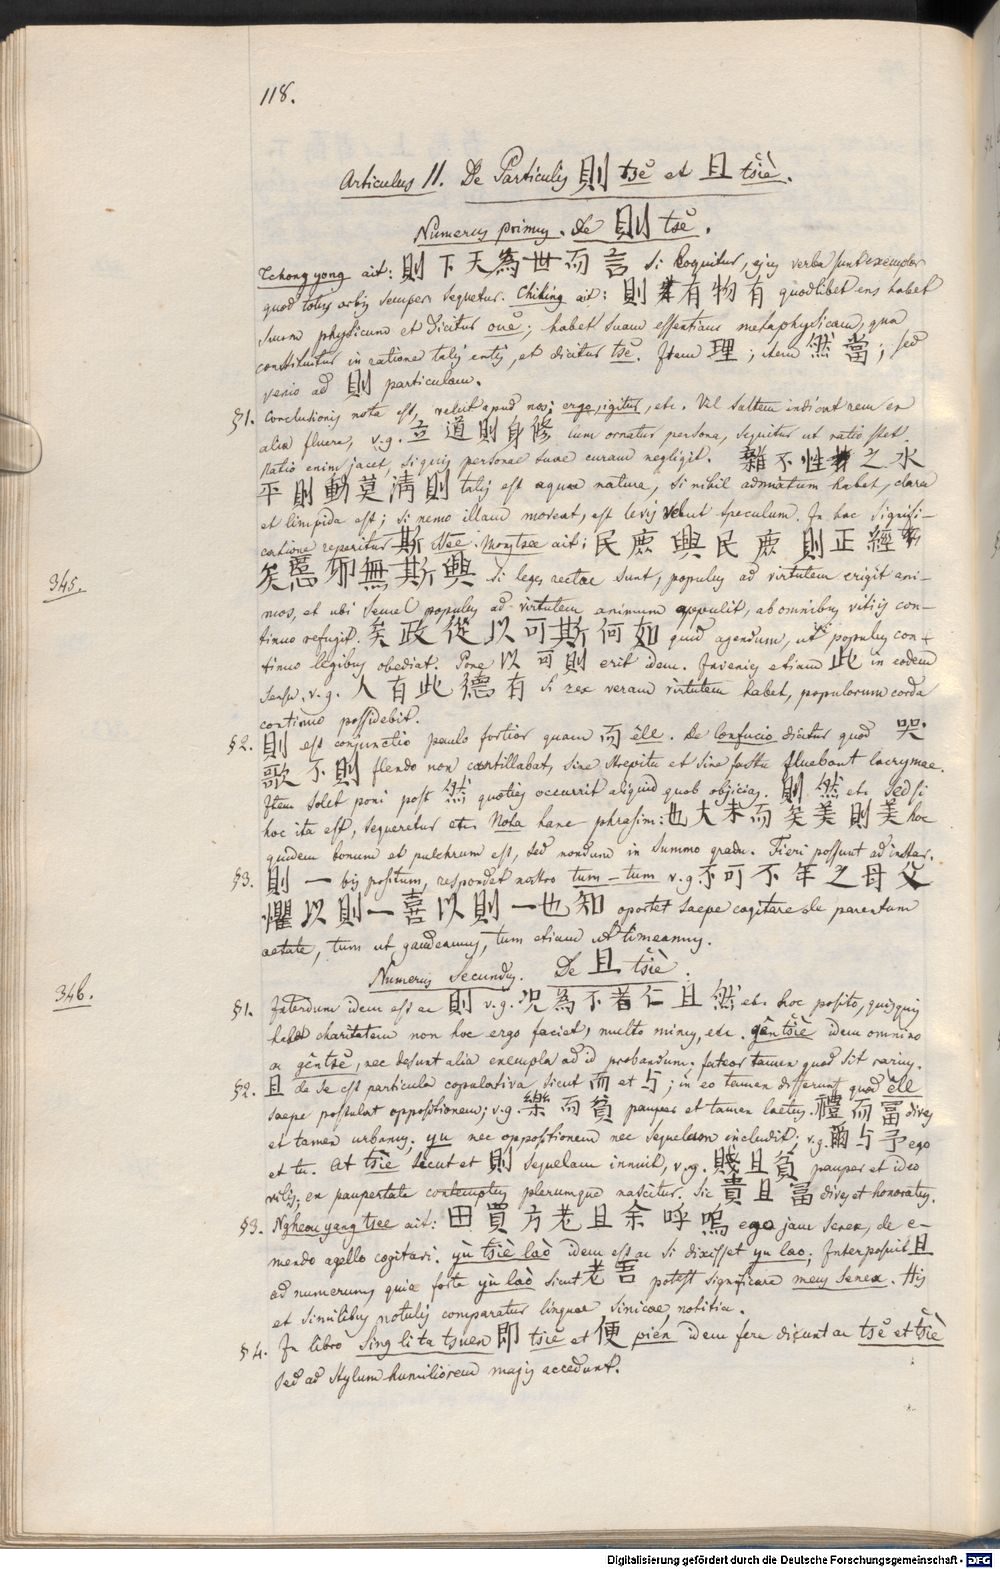 118.
Articulus 11. De Particulis 則 tsĕ et 且 tsiè.
Numerus primus. De 則 tsĕ.
Tchong yong ait: 則下天為世而言 si loquitur, ejus verba sunt exemplar
quod totus orbis semper sequetur. Chiking ait: 則 有物有 quodlibet ens habet
suum physicum et dicitur ouĕ; habet suam essentiam metaphysicam, qua
constituitur in ratione talis entis, et dicitur tsĕ. Item 理; item 然當; sed
venio ad 則 particulam.
§1. Conclusionis nota est, velut apud nos: ergo, igitur, etc. Vel saltem indicat rem ex
alia fluere, v.g. 立道則身修 cum ornatur persona, sequitur ut ratio stet.
Ratio enim jacet, si quis personae suae curam negligit. 雜不性之水
平則動莫淸則 talis est aquae natura, si nihil admixtum habet, clara
et limpida est; si nemo illam moveat, est levis velut speculum. In hac signifi-
catione reperitur 斯 ssee. Mengtsee ait: 民庶興民庶則正經
345.
矣慝邪無斯興 si leges rectae sunt, populus ad virtutem erigit ani-
mos, et ubi semel populus ad virtutem animum appulit, ab omnibus vitiis con-
tinuo refugit. 矣政從以可斯何如 quid agendum, ut populus con-
tinuo legibus obediat. Pone 以可則 erit idem. Invenies etiam 此 in eodem
sensu, v.g. 人有此德有 si rex veram virtutem habet, populorum corda
continuo possidebit.
§2. 則 est conjunctio paulo fortior quam 而 êll. De Confucio dicitur quod 哭
歌不則 flendo non cantillabat, sine strepitu et sine fastu fluebant lacrymae.
Item solet poni post 然 quoties occurrit aliquid quod objicias. 則然 etc. sed si
hoc ita est, sequeretur etc. Nota hanc phrasim: 也大未而矣美則美 hoc
quidem bonum et pulchrum est, sed nondum in summo gradu. Fieri possunt ad instar.
§3. 則一 bis positum, respondet nostro tum-tum v.g. 不可不年之母父
懼以則一喜以則一也知 oportet saepe cogitare de parentum
aetate, tum ut gaudeamus, tum etiam ut timeamus.
Numerus Secundus. De 且 tsiè.
346.
§1. Interdum idem est ac 則 v.g. 况為不者仁且然 etc. hoc posito, quisquis
habet charitatem non hoc ergo faciet, multo minus, etc. gên tsiè idem omnino
ac gên tsĕ, nec desunt alia exempla ad id probandum; fateor tamen quod sit rarius.
§2. 且 de se est particula copulativa, sicut 而 et 与; in eo tamen differunt quod êll
saepe postulat oppositionem; v.g. 樂而貧 pauper et tamen laetus. 禮而富 dives
et tamen urbanus; yu nec oppositionem nec sequelam includit; v.g. 爾与予 ego
et tu. At tsiè sicut et 則 sequelam innuit, v.g. 賤且貧 pauper et ideo
vilis; ex paupertate contemptus plerumque nascitur. Sic 貴且富 dives et honoratus.
§3. Ngheou yang tsee ait: 田買方老且余呼嗚 ego jam senex, de e-
mendo agello cogitavi. yù tsiè laò idem est ac si dixisset yu lao; Interposuit 且
ad numerum quia forte yù laò sicut 老吾 potest significare meus senex. His
et similibus notulis comparatur linguae sinicae notitia.
§4. In libro Sing li ta tsuen 即 tsiĕ et 便 pién idem fere dicunt ac tsĕ et tsiè
sed ad stylum humiliorem magis accedunt.
Digitalisierung gefördert durch die Deutsche Forschungsgemeinschaft - DFG